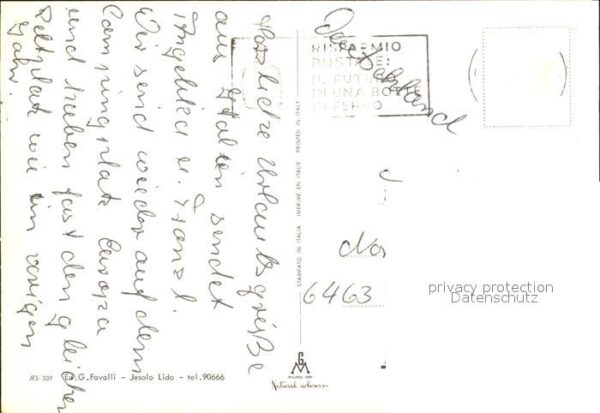 Herzliche Urlaubsgrüße
aus Italien sendet
Angelika u. Franzl.
Wir sind wieder auf dem
Campingplatz Europa
und haben fast den gleichen
Zeltplatz wie im vorigen
Jahr.
Deutschland
RISPARMIO
POSTALE:
IL FUTURO
IN UNA BOTTE
DI FERRO
STAMPATO IN ITALIA IMPRIMÉ EN ITALIE PRINTED IN ITALY
6463
privacy protection
Datenschutz
JES 339 Ed. G. Favalli - Jesolo Lido - tel. 90666
GM
Natural colour